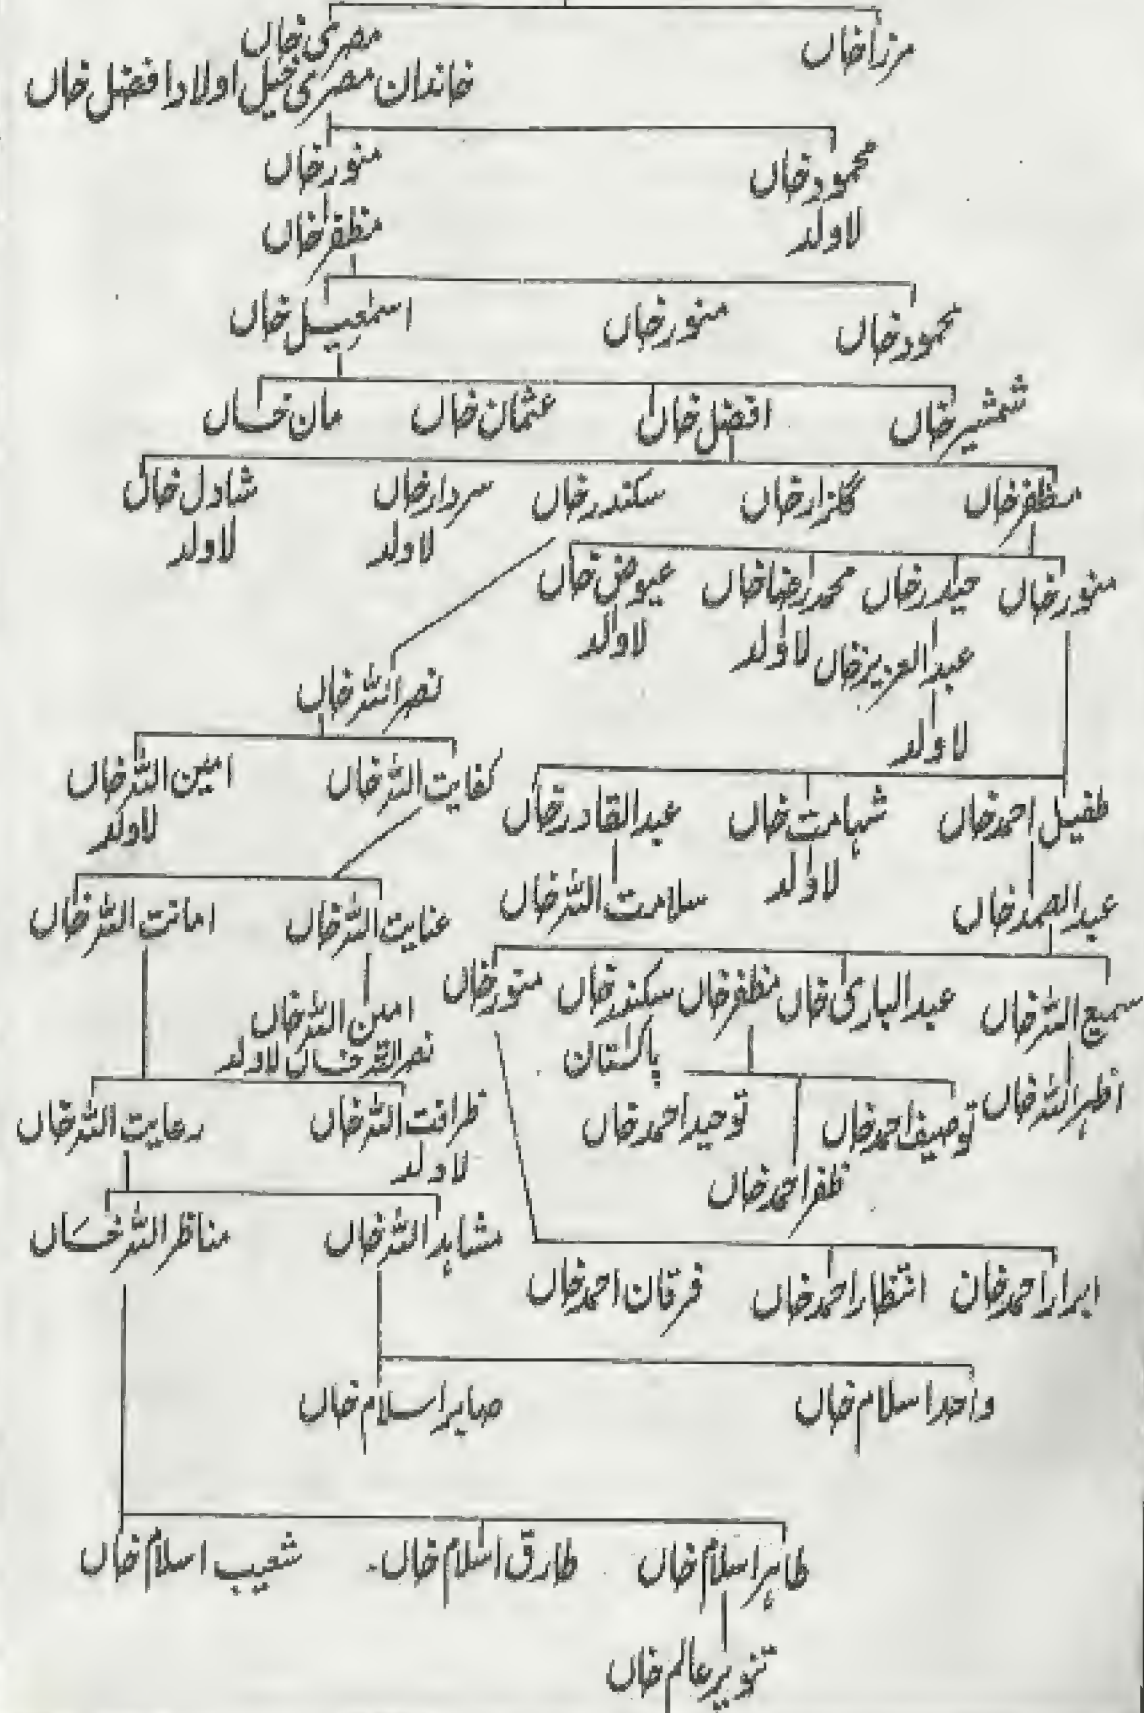 مرزا خاں
مصری خاں
خاندان مصری خیل اولاد افضل خاں
محمود خاں
لاولد
منور خاں
مظفر خاں
محمود خاں
منور خاں
اسمٰعیل خاں
شمشیر خاں
افضل خاں
عثمان خاں
مان خاں
مظفر خاں
گلزار خاں
سکندر خاں
سردار خاں
لاولد
شادل خاں
لاولد
منور خاں
حیدر خاں
محمد رضا خاں
لاولد
عیوض خاں
لاولد
عبدالعزیز خاں
لاولد
نصر اللہ خاں
کفایت اللہ خاں
امین اللہ خاں
لاولد
طفیل احمد خاں
شہامت خاں
لاولد
عبدالقادر خاں
سلامت اللہ خاں
عنایت اللہ خاں
امانت اللہ خاں
عبدالصمد خاں
سمیع اللہ خاں
عبدالباری خاں
مظفر خاں
سکندر خاں
پاکستان
منور خاں
امین اللہ خاں
نصر اللہ خاں لاولد
اظہر اللہ خاں
توصیف احمد خاں
توحید احمد خاں
ظفر احمد خاں
ظرافت اللہ خاں
لاولد
رعایت اللہ خاں
مشاہد اللہ خاں
مناظر اللہ خاں
ابرار احمد خان
انتظار احمد خاں
فرقان احمد خاں
واحد اسلام خاں
صابر اسلام خاں
طاہر اسلام خاں
طارق اسلام خاں
شعیب اسلام خاں
تنویر عالم خاں